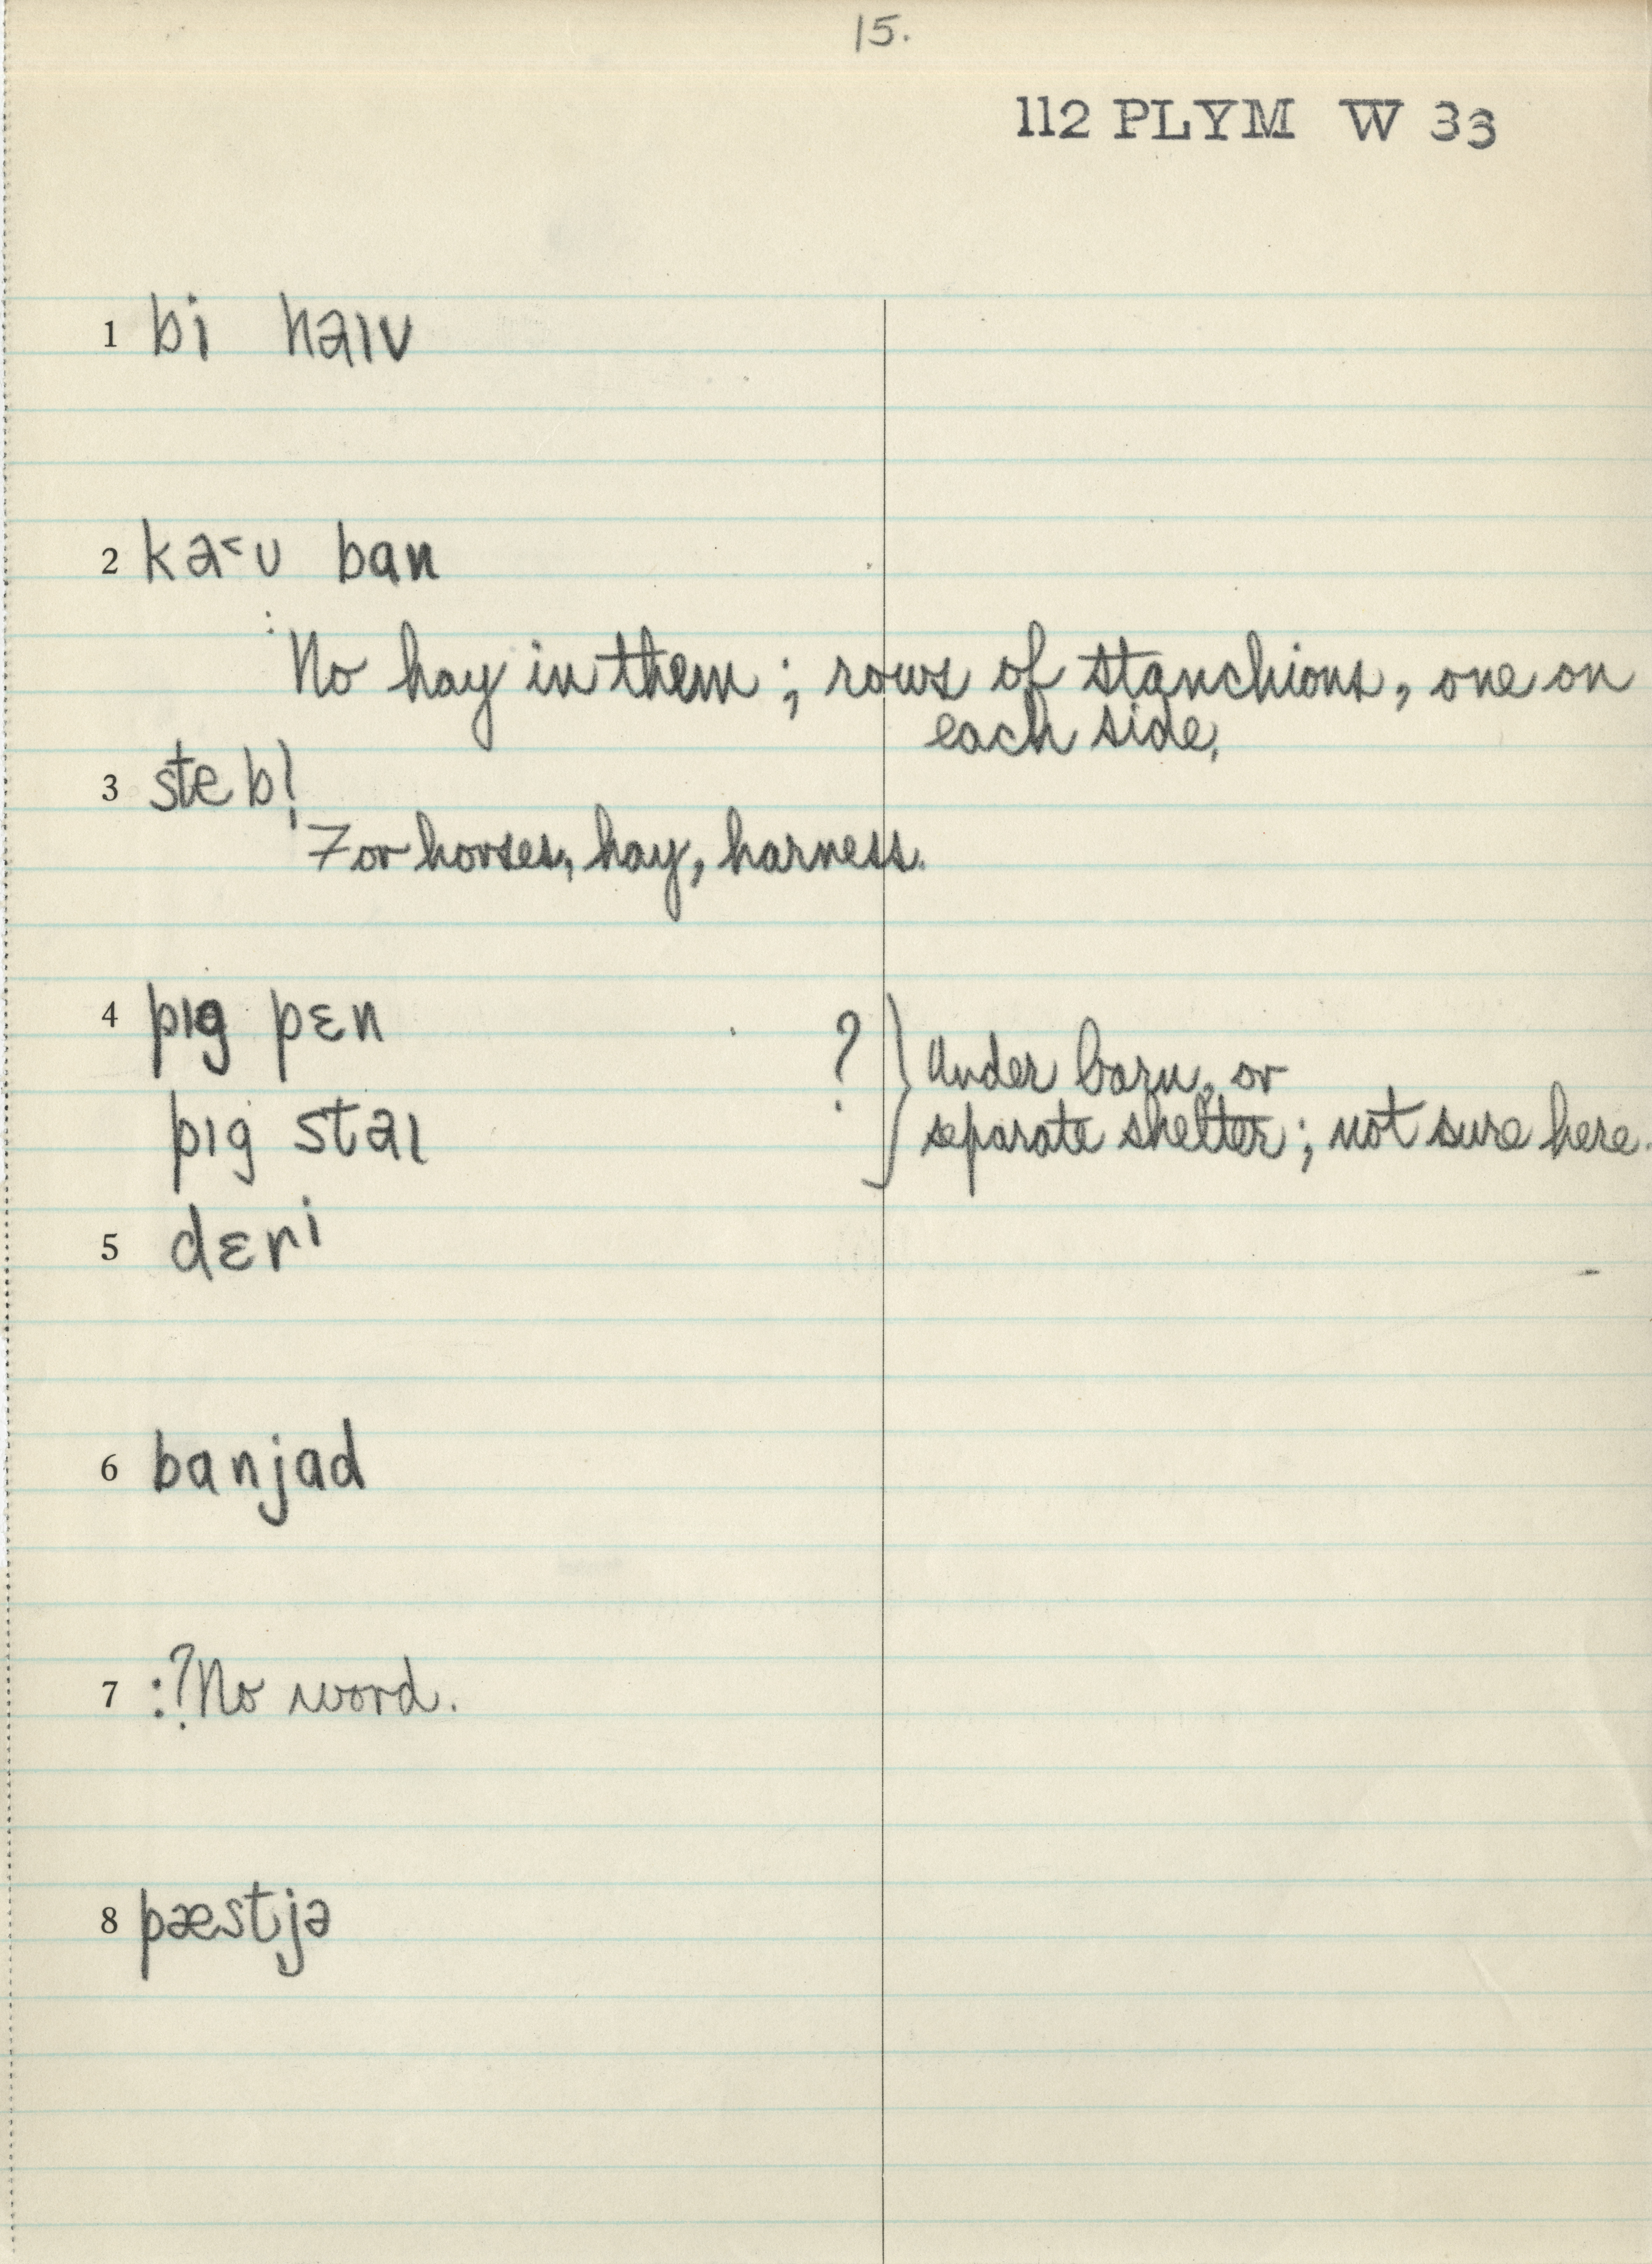 15.
112 PLYM W 33
1 bi haɪv
2 ka˂ʊ ban
: No hay in them; rows of stanchions, one on
each side.
3 steb!̩
For horses, hay, harness.
4 pɪg pɛn
? } Under barn, or
pɪg staɪ
separate shelter; not sure here.
5 dɛri
6 banjad
7 :? No word.
8 pæstjə